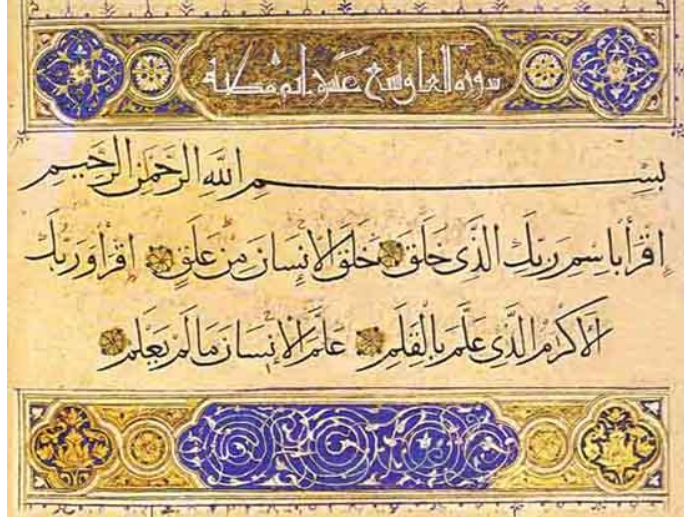 سورة العلق تسع عشرة آية مكية
بِسْمِ اللهِ الرَّحْمٰنِ الرَّحِيمِ
اِقْرَأْ بِاسْمِ رَبِّكَ الَّذِى خَلَقَ خَلَقَ الْاِنْسَانَ مِنْ عَلَقٍ اِقْرَأْ وَرَبُّكَ
الْاَكْرَمُ الَّذِى عَلَّمَ بِالْقَلَمِ عَلَّمَ الْاِنْسَانَ مَا لَمْ يَعْلَمْ